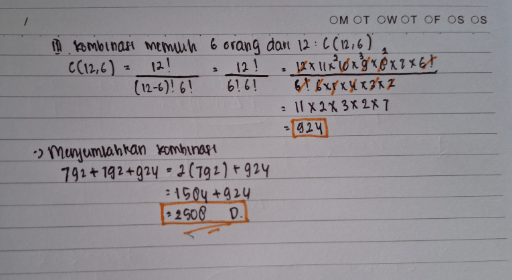 OM OT OW OT OF OS OS
Kombinasi memilih 6 orang dari 12 : C(12,6)
C(12,6) = 12! / (12-6)! 6! = 12! / 6! 6! = 12 x 11 x 10 x 9 x 8 x 7 x 6! / 6! 6 x 5 x 4 x 3 x 2
= 11 x 2 x 3 x 2 x 7
= 924
-> Menjumlahkan kombinasi
792 + 792 + 924 = 2(792) + 924
= 1584 + 924
= 2508 D.